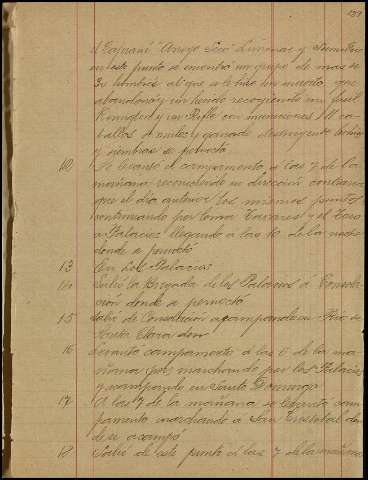 139
á Cajnaní "Arroyo Seco" Limones y Tumbas
en este punto se encontró un grupo de mas de
30 hombres al que se le hizo un muerto que
abandonó y un herido recogiendo un fusil
Remigton y un Rifle con municiones 11 ca-
ballos de monte y ganado destruyendo bohíos
y siembras se pernoctó
10 Se levantó el campamento á las 7 de la
mañana reconociendo en dirección contraria
que el día anterior los mismos puntos
continuando por loma Tavares y el Toro
a Palacios llegando a las 10 de la noche
donde se pernoctó
13 En Los Palacios
14 Salió la Brigada de los Palacios á Consola-
ción donde se pernoctó
15 Salió de Consolación acampando en Rio de
Santa Clara
16 Levantó campamento á las 6 de la ma-
ñana marchando por los Palacios
y acampando en Santo Domingo
17 A las 7 de la mañana se levantó cam-
pamento marchando á San Cristobal don-
de se acampó
18 Salió de este punto á las 7 de la mañana